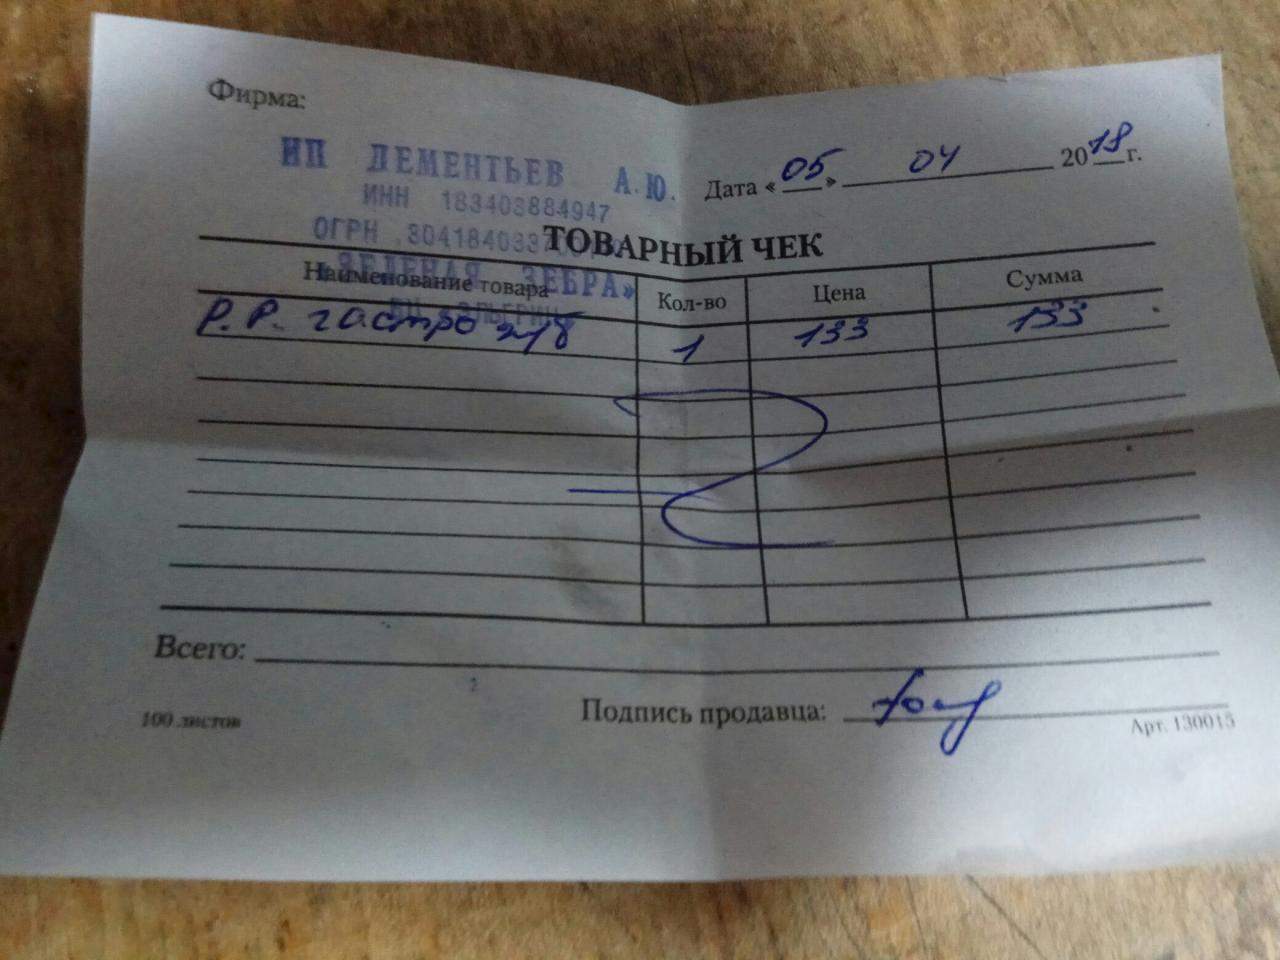 Фирма:
ИП ДЕМЕНТЬЕВ А.Ю.
Дата «05» 04 2018 г.
ИНН 183403884947
ОГРН
ТОВАРНЫЙ ЧЕК
«ЗЕЛЕНАЯ ЗЕБРА»
Наименование товара Кол-во Цена Сумма
Р.Р. гастро 1 133 133
Всего:
Подпись продавца:
100 листов Арт. 130015